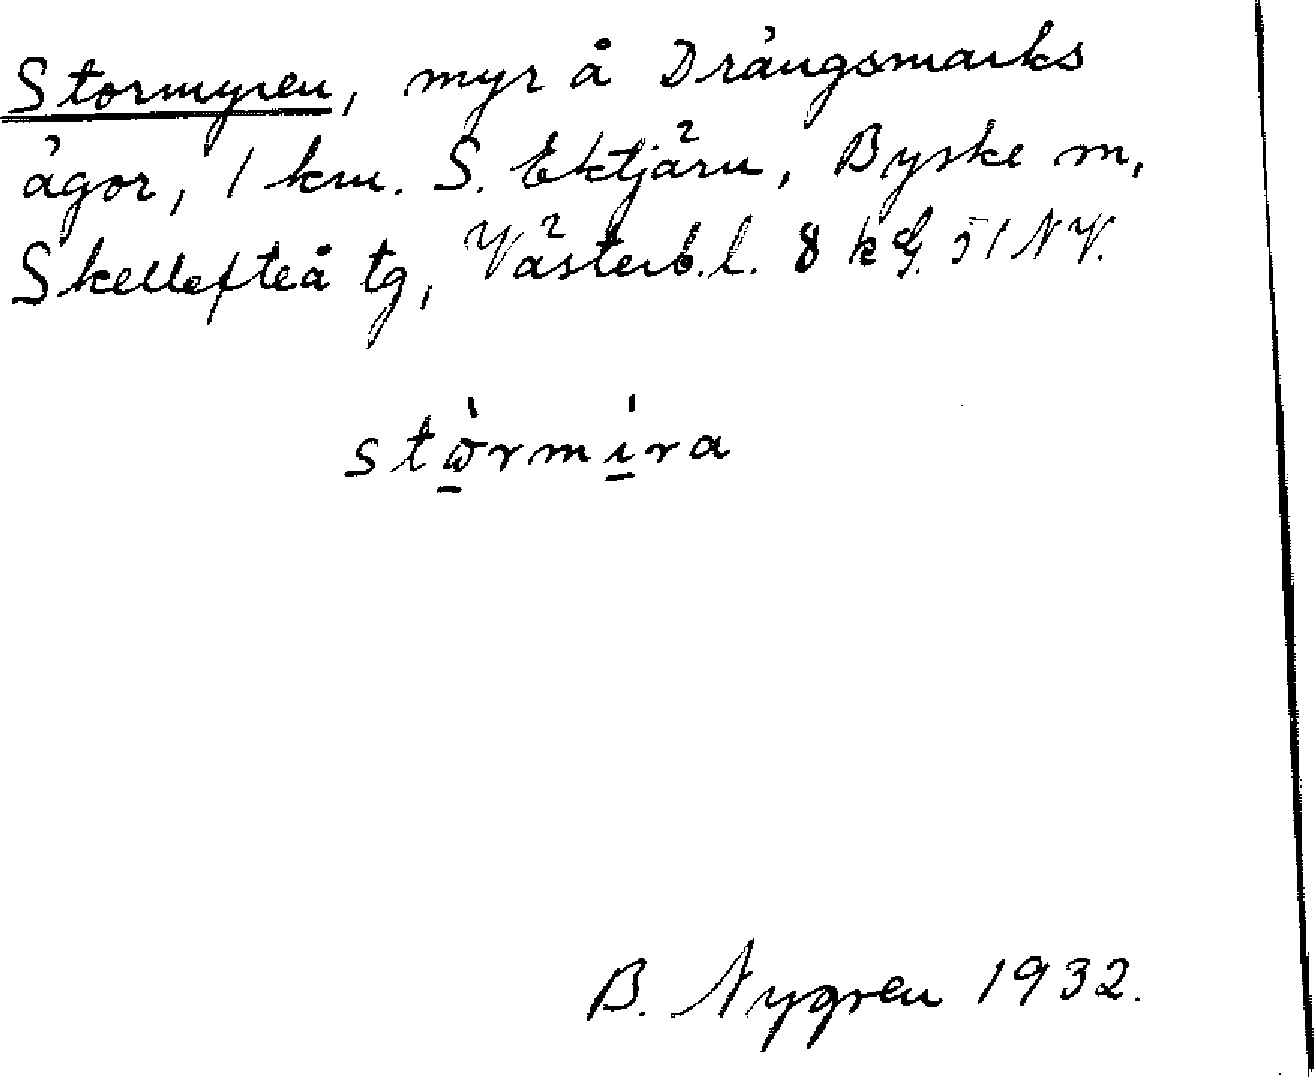 Stormyren, myr å Drängsmarks
ägor, 1 km. S. Ektjärn, Byske m,
Skellefteå tg, Västerb.l. 8 kg. 51 NV.
stòrmíra
B. Nygren 1932.